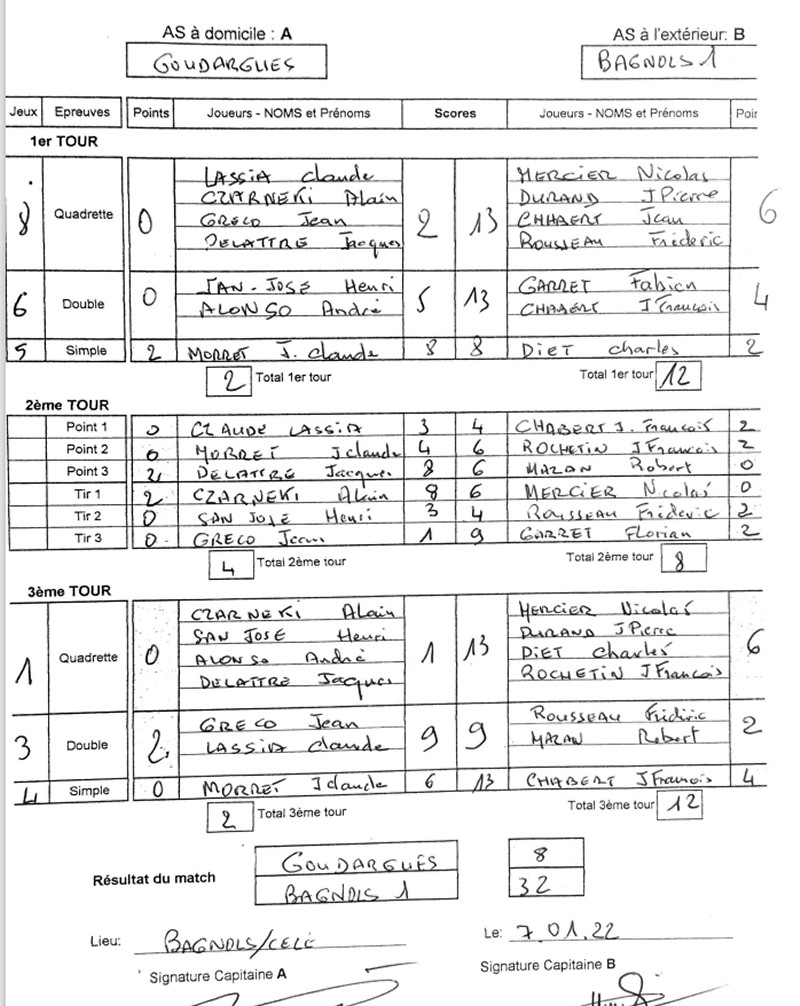 AS à domicile : A AS à l'extérieur: B
GOUDARGUES BAGNOLS 1
Jeux Epreuves Points Joueurs - NOMS et Prénoms Scores Joueurs - NOMS et Prénoms Poin
1er TOUR
LASSIA Claude MERCIER Nicolas
CZARNEKI Alain DURAND J Pierre
8 Quadrette 0 GRECO Jean 2 13 CHABERT Jean 6
DELATTRE Jacques ROUSSEAU Fréderic
SAN-JOSE Henri GARRET Fabien
6 Double 0 ALONSO André 5 13 CHABERT J François 4
5 Simple 2 MORRET J. Claude 8 8 DIET Charles 2
2 Total 1er tour Total 1er tour 12
2ème TOUR
Point 1 0 CLAUDE LASSIA 3 4 CHABERT J. François 2
Point 2 0 MORRET J claude 4 6 ROCHETIN J Francois 2
Point 3 2 DELATTRE Jacques 8 6 MAZAN Robert 0
Tir 1 2 CZARNEKI Alain 8 6 MERCIER Nicolas 0
Tir 2 0 SAN JOSE Henri 3 4 ROUSSEAU Fréderic 2
Tir 3 0 GRECO Jean 1 9 GARRET Florian 2
4 Total 2ème tour Total 2ème tour 8
3ème TOUR
CZARNEKI Alain MERCIER Nicolas
SAN JOSE Henri DURAND J Pierre
1 Quadrette 0 ALONSO André 1 13 DIET Charles 6
DELATTRE Jacques ROCHETIN J Francois
GRECO Jean ROUSSEAU Frédéric
3 Double 2 LASSIA Claude 9 9 MAZAN Robert 2
4 Simple 0 MORRET J claude 6 13 CHABERT J Francois 4
2 Total 3ème tour Total 3ème tour 12
Résultat du match
GOUDARGUES 8
BAGNOLS 1 32
Lieu: BAGNOLS/CEZE Le: 7.01.22
Signature Capitaine A Signature Capitaine B